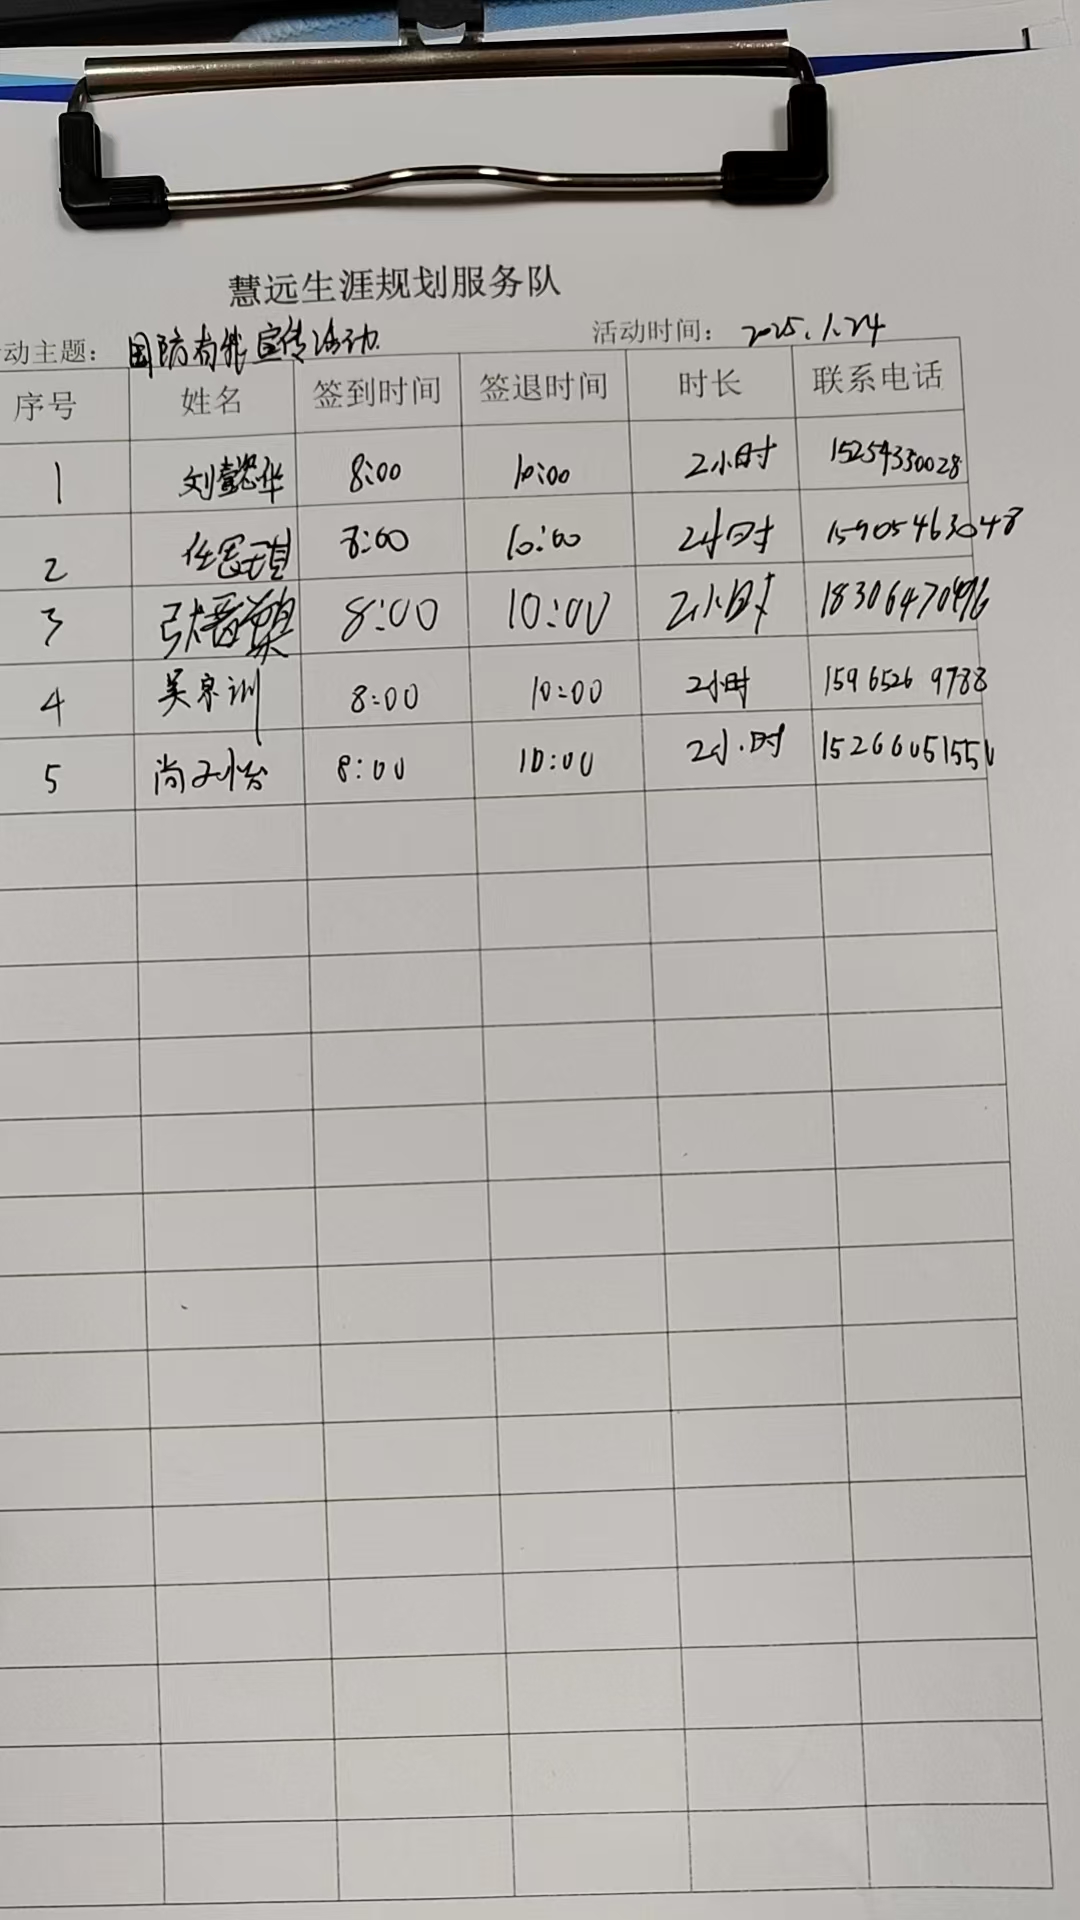 慧远生涯规划服务队
动主题： 国防有我宣传活动 活动时间： 2025.1.24
序号 姓名 签到时间 签退时间 时长 联系电话
1 刘懿华 8:00 10:00 2小时 15254350028
2 任 8:00 10:00 2小时 15905463048
3 张 8:00 10:00 2小时
4 吴京训 8:00 10:00 2小时 159 6526 9788
5 尚子怡 8:00 10:00 2小时